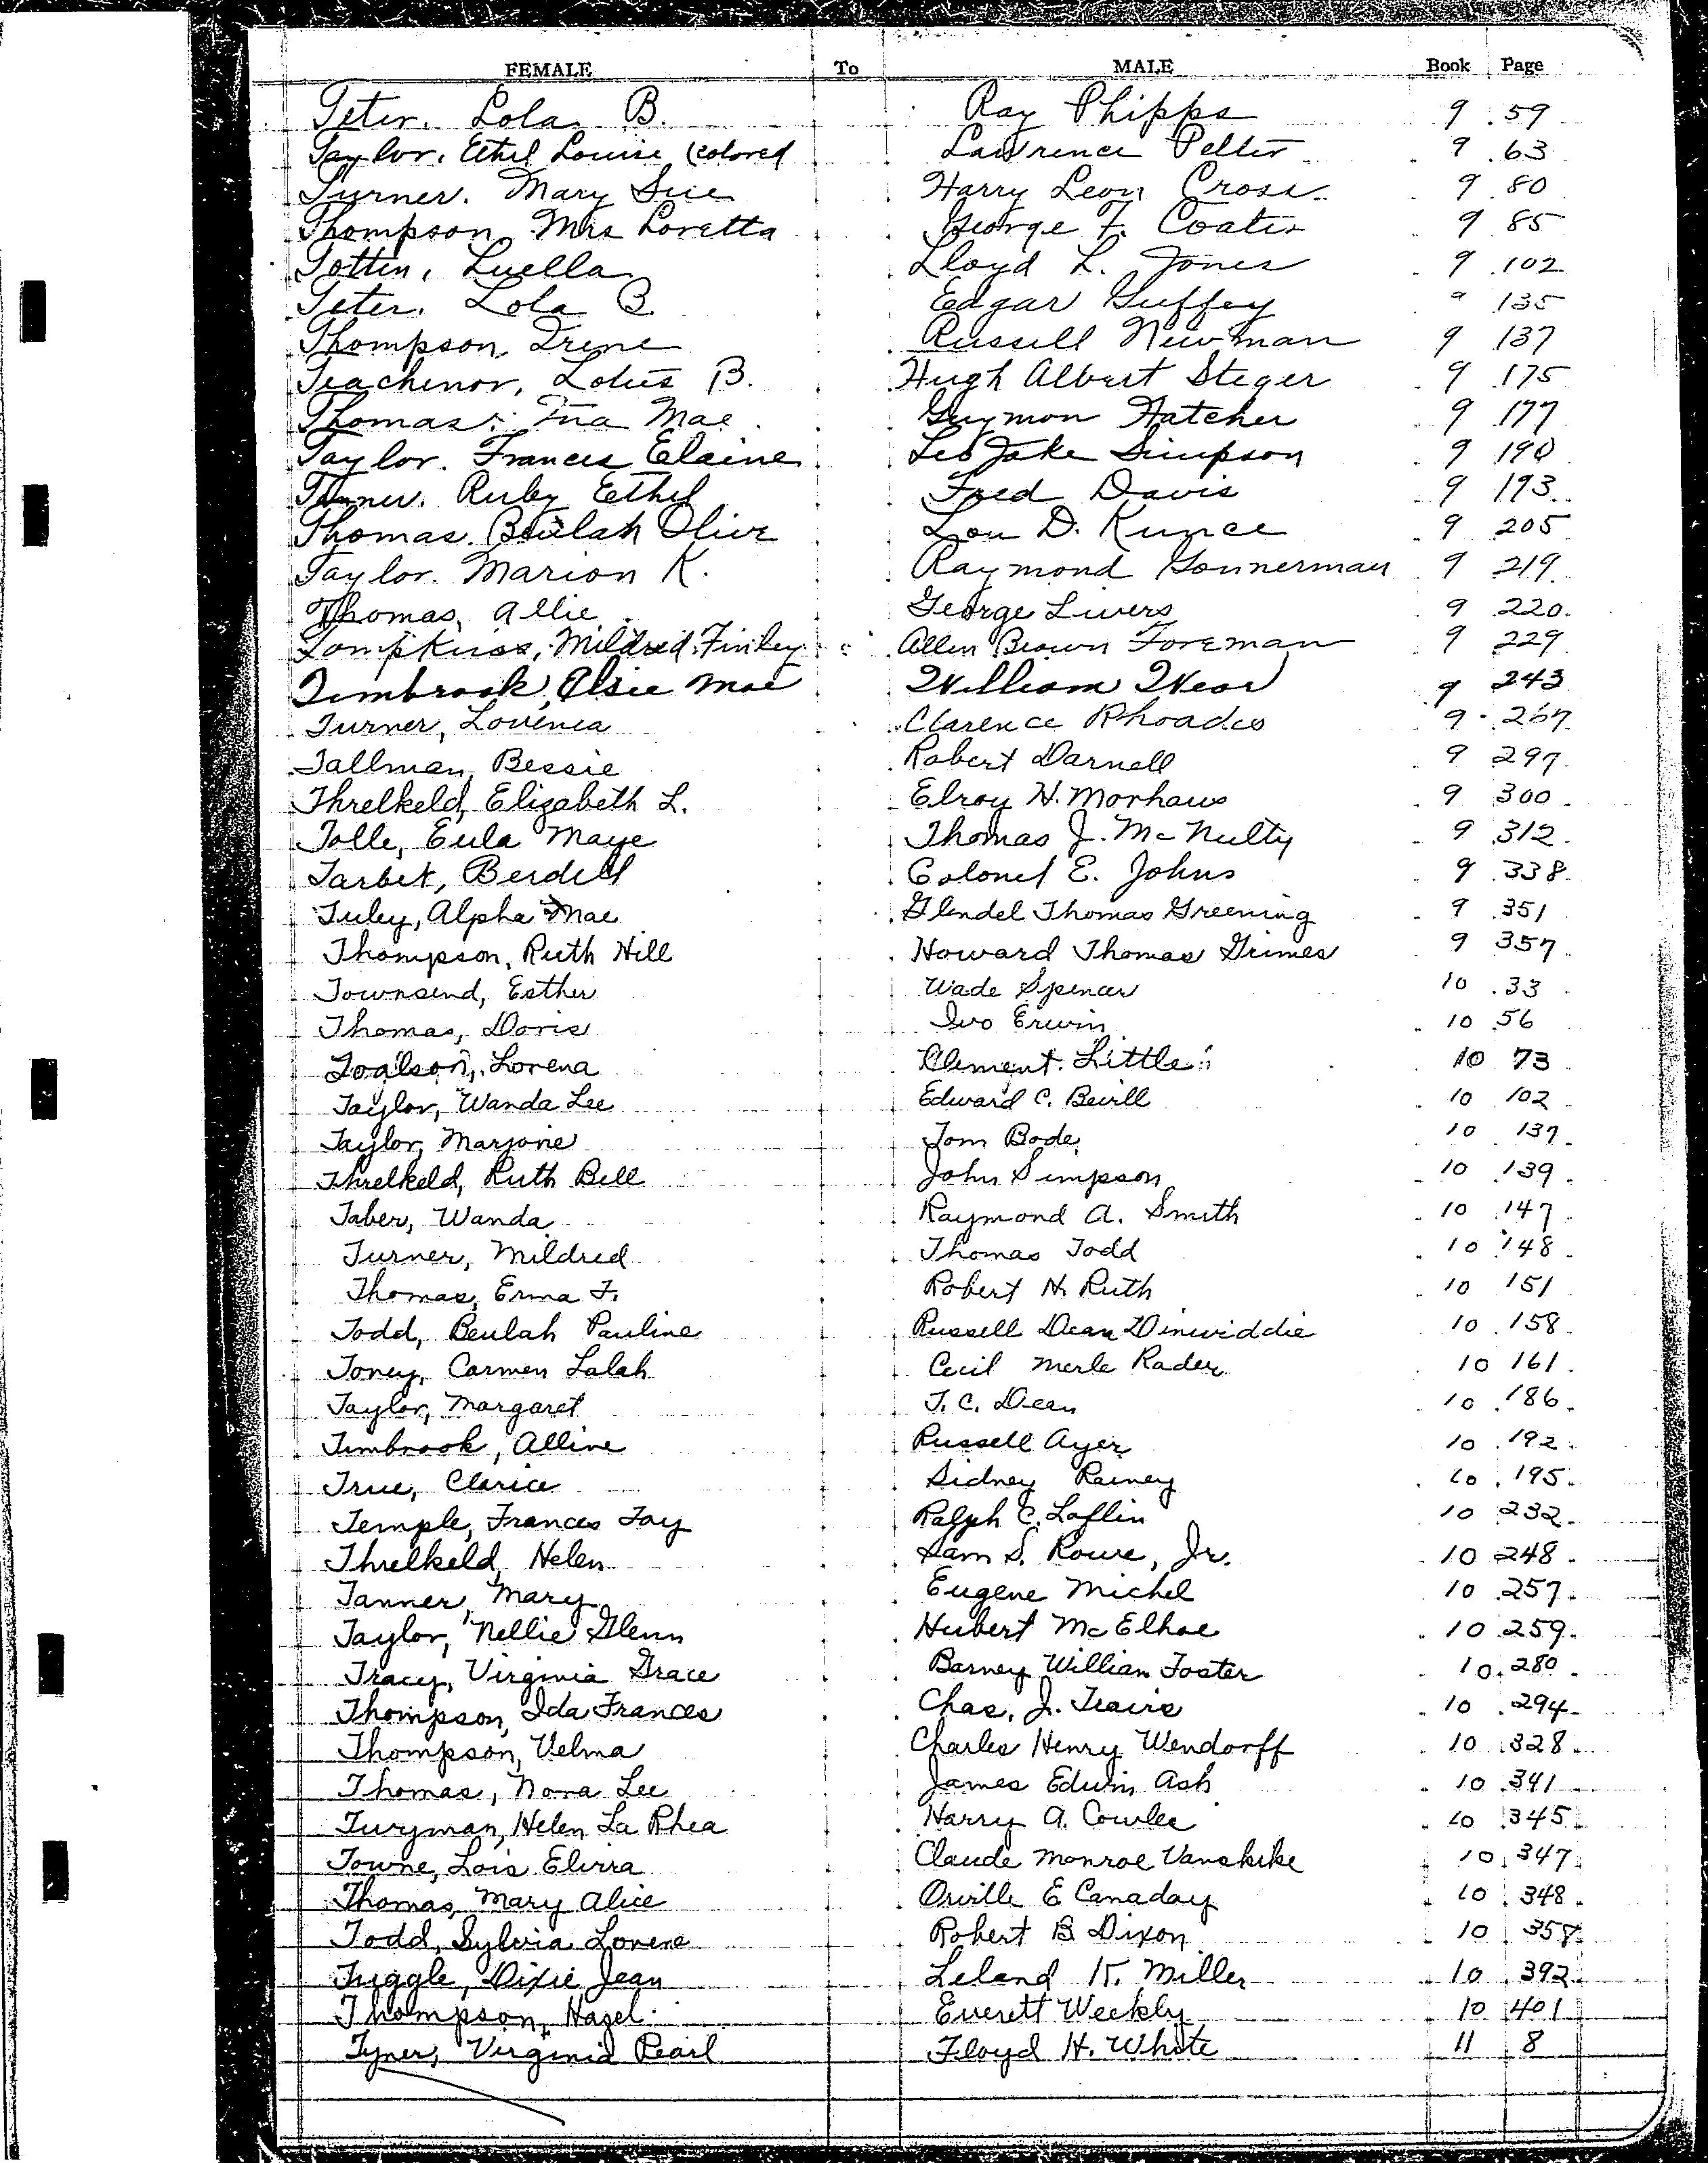 FEMALE To MALE Book Page
Teter. Lola B. Ray Phipps 9 59
Taylor. Ethel Louise (colored Lawrence Pelter 9 63
Turner. Mary Sue Harry Leon Cross 9 80
Thompson Mrs Loretta George F. Coates 9 85
Totten, Luella Lloyd L. Jones 9 102
Teter. Lola B. Edgar Guffey 9 135
Thompson, Irene Russell Newman 9 137
Teachenor, Lotus B. Hugh Albert Steger 9 175
Thomas, Mae Guymon Hatcher 9 177
Taylor. Frances Elaine Leo Jake Simpson 9 190
Turner. Ruby Ethel Fred Davis 9 193
Thomas. Beulah Olive Lou D. Kunce 9 205
Taylor. Marion K. Raymond Gonnerman 9 219
Thomas, Allie George Livers 9 220
Tompkins, Mildred Finley Allen Brown Foreman 9 229
Timbrook, Elsie Mae William Wear 9 243
Turner, Lovenia Clarence Rhoades 9 267
Tallman, Bessie Robert Darnell 9 297
Threlkeld, Elizabeth L. Elroy H. Morhaus 9 300
Tolle, Eula Maye Thomas J. McNulty 9 312
Tarbet, Berdell Colonel E. Johns 9 338
Tuley, Alpha Mae Glendel Thomas Greening 9 351
Thompson, Ruth Hill Howard Thomas Grimes 9 357
Townsend, Esther Wade Spencer 10 33
Thomas, Doris Ivo Erwin 10 56
Toalson, Lorena Clement Little 10 73
Taylor, Wanda Lee Edward C. Bevill 10 102
Taylor, Marjorie Tom Bode 10 137
Threlkeld, Ruth Bell John Simpson 10 139
Taber, Wanda Raymond A. Smith 10 147
Turner, Mildred Thomas Todd 10 148
Thomas, Erma F. Robert H. Ruth 10 151
Todd, Beulah Pauline Russell Dean Dinwiddie 10 158
Toney, Carmen Lalah Cecil Merle Rader 10 161
Taylor, Margaret T. C. Dean 10 186
Timbrook, Alline Russell Ayer 10 192
True, Clarice Sidney Rainey 10 195
Temple, Frances Fay Ralph C. Laflin 10 232
Threlkeld, Helen Sam S. Rowe, Jr. 10 248
Tanner, Mary Eugene Michel 10 257
Taylor, Nellie Glenn Hubert McElhoe 10 259
Tracy, Virginia Grace Barney William Foster 10 280
Thompson, Ida Frances Chas. J. Travis 10 294
Thompson, Velma Charles Henry Wendorff 10 328
Thomas, Nora Lee James Edwin Ash 10 341
Twyman, Helen La Rhea Harry A. Cowlee 10 345
Towne, Lois Elvira Claude Monroe Vanskike 10 347
Thomas, Mary Alice Orville E Canaday 10 348
Todd, Sylvia Lorene Robert B. Dixon 10 358
Tuggle, Dixie Jean Leland K. Miller 10 392
Thompson, Hazel Everett Weekly 10 401
Tyner, Virginia Pearl Floyd H. White 11 8